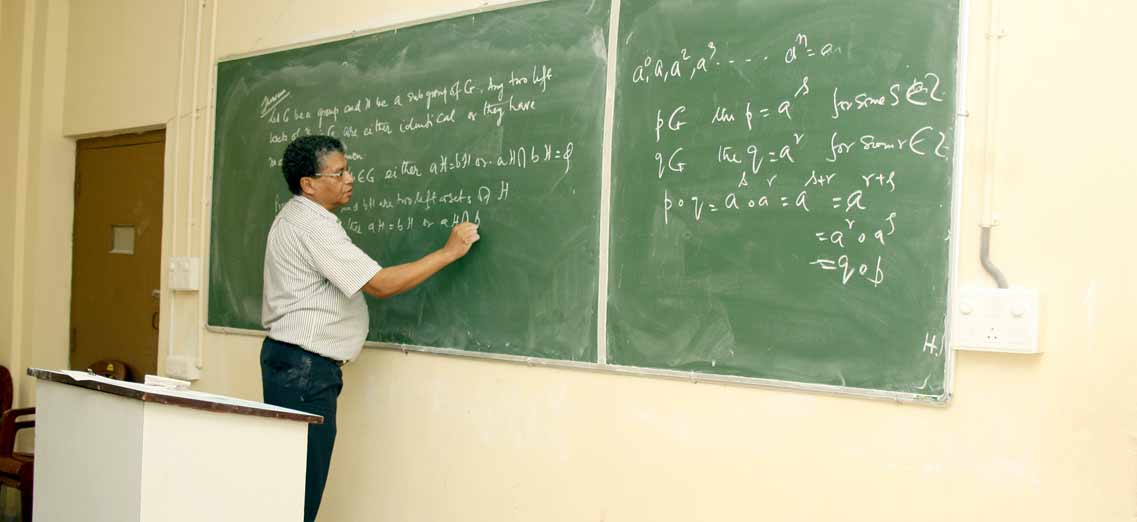 Theorem
Let G be a group and H be a subgroup of G. Any two left
cosets of H in G are either identical or they have
∈G either aH=bH or aH∩bH=φ
and bH are two left cosets of H
the aH=bH or aH∩b
a⁰,a,a²,a³ ..... aⁿ=a
pG the p=aˢ for some S∈Z
qG the q=aʳ for some r∈Z
p∘q=aˢ∘aʳ=aˢ⁺ʳ=aʳ⁺ˢ
=aʳ∘aˢ
=q∘p
H.